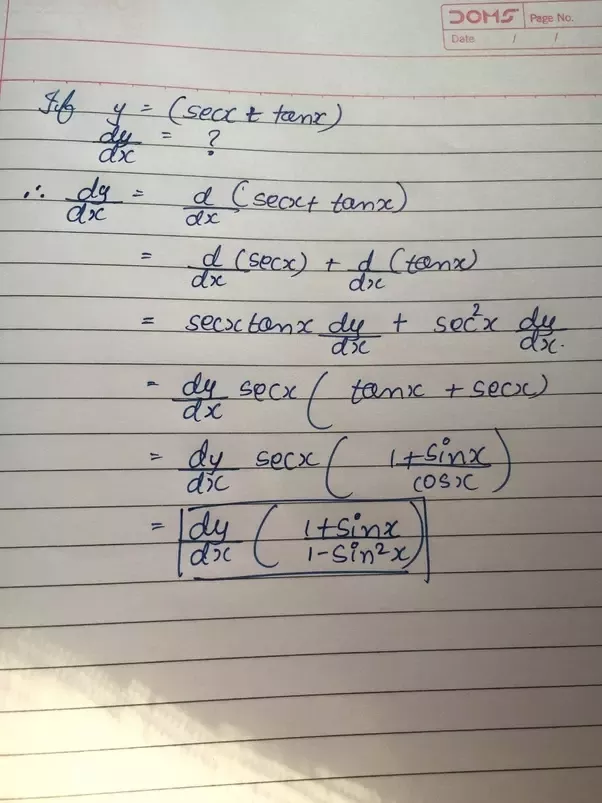 DOMS Page No.
Date / /
If y = (secx + tanx)
dy/dx = ?
∴ dy/dx = d/dx (secx + tanx)
= d/dx (secx) + d/dx (tanx)
= secxtanx dy/dx + sec²x dy/dx.
= dy/dx secx ( tanx + secx)
= dy/dx secx ( 1+sinx/cosx )
= dy/dx ( 1+sinx/1-sin²x )